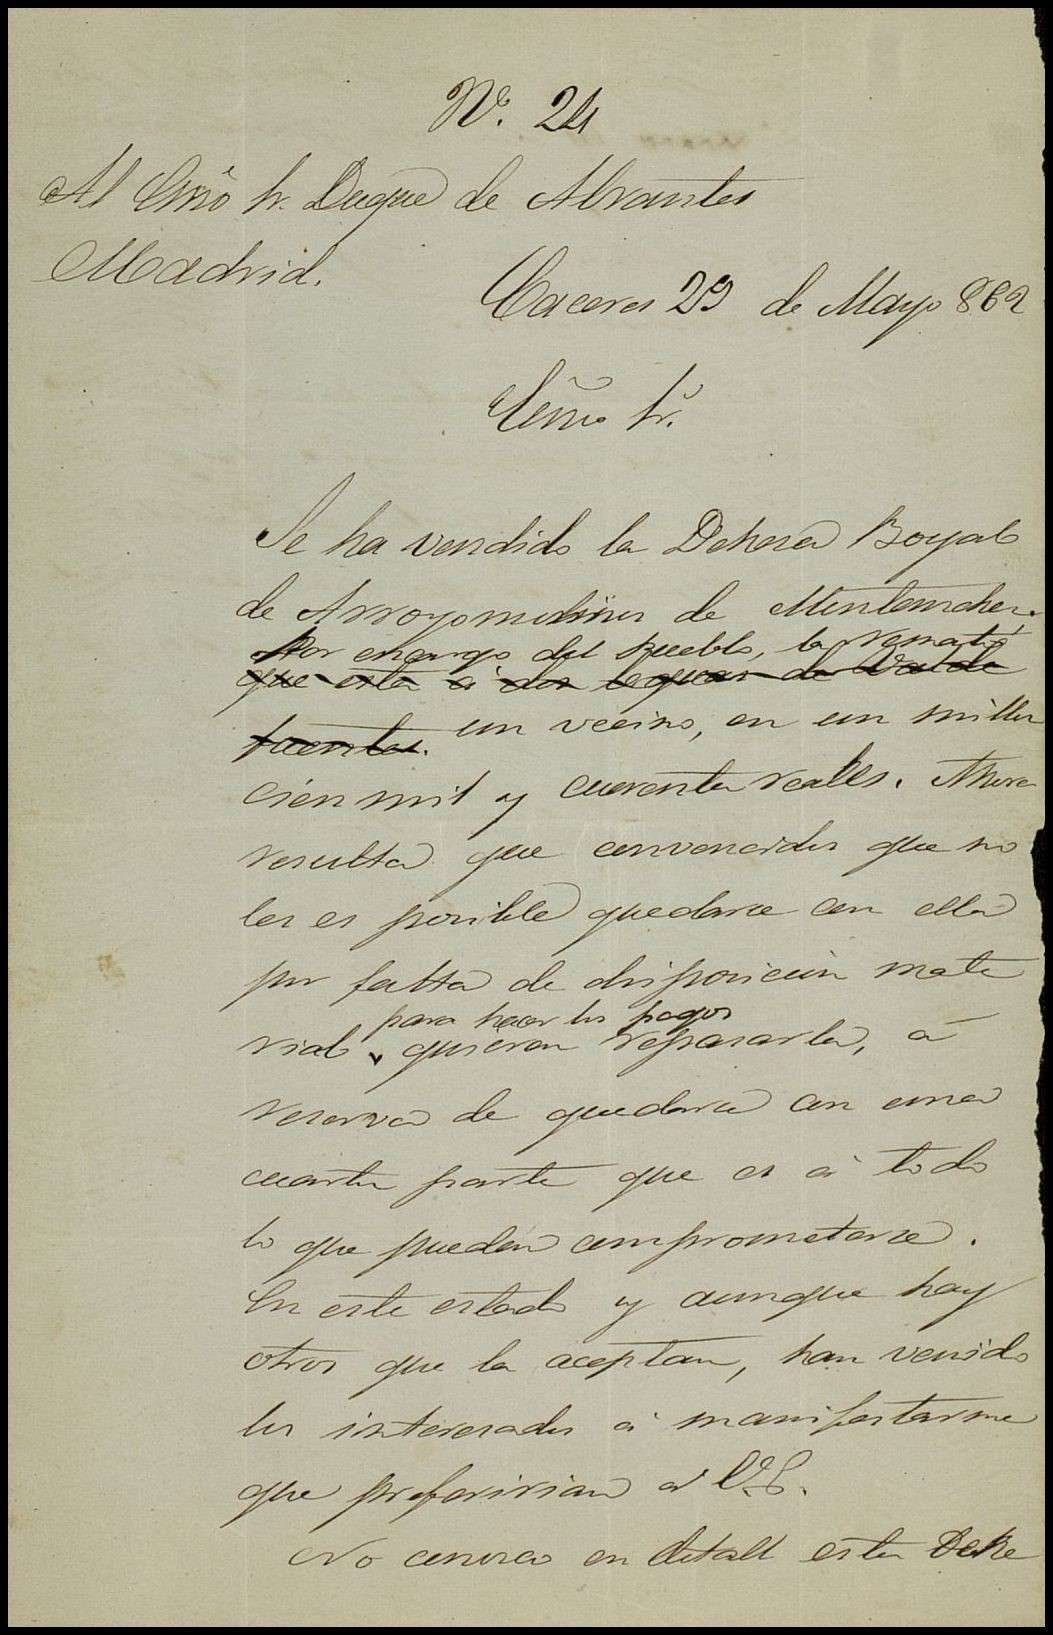 Nº. 24
Al Exmo Sr. Duque de Abrantes
Madrid.
Caceres 29 de Mayo 862
Exmo Sr.
Se ha vendido la Dehesa Boyal
de Arroyomolinos de Montanchez.
Por encargo del pueblo, la remató
que esta á dos leguas de Valde
fuentes. un vecino, en un millon
cien mil y cuarenta reales. Ahora
resulta que convencidos que no
les es posible quedarse con ella
por falta de disposicion mate
para hacer los pagos
rial quieren traspasarla, á
reserva de quedarse con una
cuarta parte que es á todo
lo que pueden comprometerse.
En este estado y aunque hay
otros que la aceptan, han venido
los interesados á manifestarme
que preferirian á V.E.
No conozco en detall esta Dehe